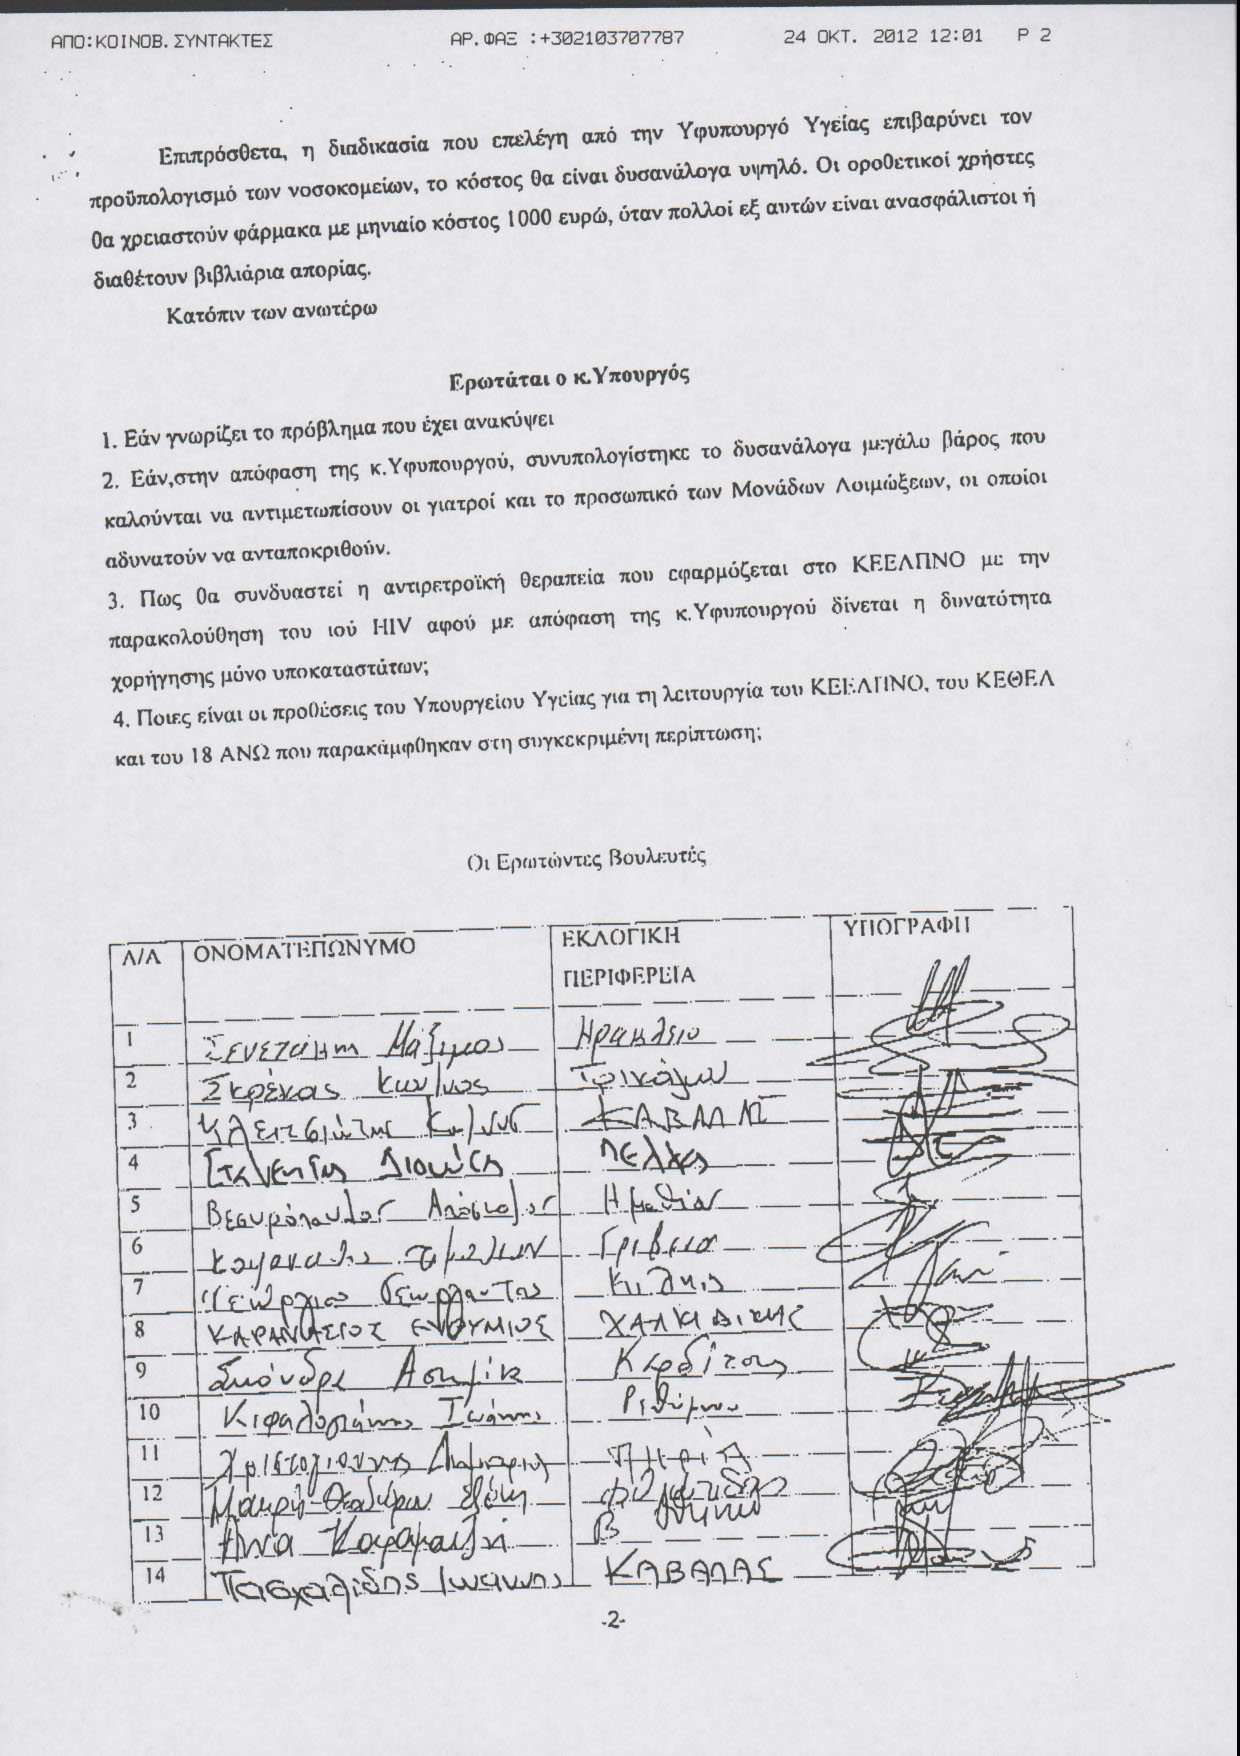 ΑΠΟ:ΚΟΙΝΟΒ. ΣΥΝΤΑΚΤΕΣ ΑΡ.ΦΑΞ :+302103707787 24 ΟΚΤ. 2012 12:01 P 2
Επιπρόσθετα, η διαδικασία που επελέγη από την Υφυπουργό Υγείας επιβαρύνει τον
προϋπολογισμό των νοσοκομείων, το κόστος θα είναι δυσανάλογα υψηλό. Οι οροθετικοί χρήστες
θα χρειαστούν φάρμακα με μηνιαίο κόστος 1000 ευρώ, όταν πολλοί εξ αυτών είναι ανασφάλιστοι ή
διαθέτουν βιβλιάρια απορίας.
Κατόπιν των ανωτέρω
Ερωτάται ο κ.Υπουργός
1. Εάν γνωρίζει το πρόβλημα που έχει ανακύψει
2. Εάν,στην απόφαση της κ.Υφυπουργού, συνυπολογίστηκε το δυσανάλογα μεγάλο βάρος που
καλούνται να αντιμετωπίσουν οι γιατροί και το προσωπικό των Μονάδων Λοιμώξεων, οι οποίοι
αδυνατούν να ανταποκριθούν.
3. Πως θα συνδυαστεί η αντιρετροϊκή θεραπεία που εφαρμόζεται στο ΚΕΕΛΠΝΟ με την
παρακολούθηση του ιού HIV αφού με απόφαση της κ.Υφυπουργού δίνεται η δυνατότητα
χορήγησης μόνο υποκαταστάτων;
4. Ποιες είναι οι προθέσεις του Υπουργείου Υγείας για τη λειτουργία του ΚΕΕΛΠΝΟ, του ΚΕΘΕΑ
και του 18 ΑΝΩ που παρακάμφθηκαν στη συγκεκριμένη περίπτωση;
Οι Ερωτώντες Βουλευτές
Α/Α ΟΝΟΜΑΤΕΠΩΝΥΜΟ ΕΚΛΟΓΙΚΗ ΠΕΡΙΦΕΡΕΙΑ ΥΠΟΓΡΑΦΗ
1 Σενετάκης Μάξιμος Ηράκλειο
2 Σκρέκας Κων/νος Τρικάλων
3 Κλειτσιώτης Κων/νος ΚΑΒΑΛΑΣ
4 Σταμενίτης Διονύσης Πέλλας
5 Βεσυρόπουλος Απόστολος Ημαθίας
6 Γρεβενά
7 Γεώργιος Γεωργαντάς Κιλκίς
8 ΚΑΡΑΝΑΣΙΟΣ ΕΥΘΥΜΙΟΣ ΧΑΛΚΙΔΙΚΗΣ
9 Σκόνδρα Ασημίνα Καρδίτσης
10 Κεφαλογιάννης Ιωάννης Ρεθύμνου
11 Χριστογιάννης Δημήτριος
12 Μακρή-Θεοδώρου Ελένη Φλώρινας
13 Άννα Καραμανλή Β Αθηνών
14 Πασχαλίδης Ιωάννης ΚΑΒΑΛΑΣ
-2-